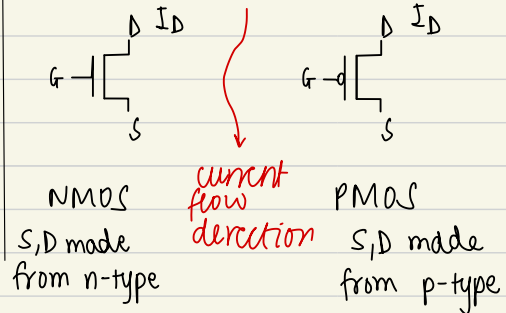 D ID
G
S
NMOS
S,D made
from n-type
current
flow
derection
D ID
G
S
PMOS
S,D made
from p-type